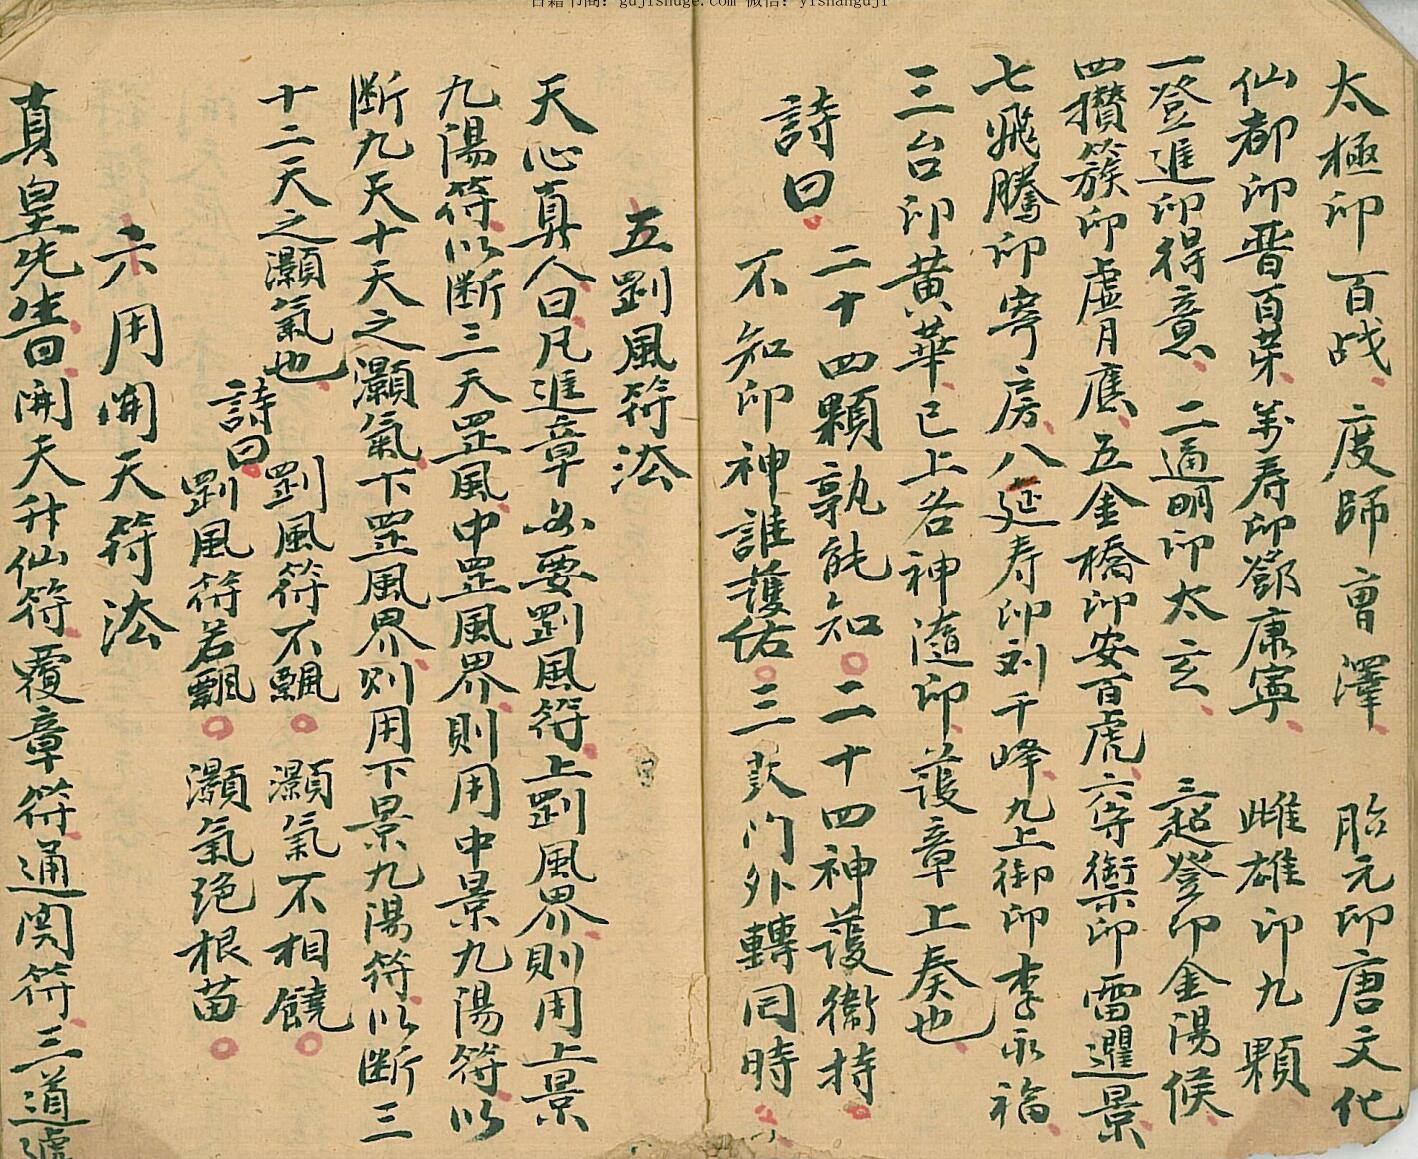 古籍书阁：gujishuge.com 微信：yishanguji
太極印百战、度師曹澤、胎元印唐文化
仙都印晋百芽、萬寿印鄧康寧、雌雄印九顆
一登進印得意、二通明印太玄、三超登印金陽候、
四攢簇印虛月應、五金橋印安百虎、六等衛印雷邏景、
七飛騰印寄房、八延寿印刘千峰、九上御印李永福、
三台印黄華、已上各神隨印、護章上奏也、
詩曰、二十四顆孰能知○二十四神護衛持○
不知印神誰護佑○三款门外轉同時○
五劉風符法
天心真人曰、凡進章必要劉風符、上劉風界、則用上景
九陽符、以断三天罡風、中罡風界、則用中景九陽符、以
断九天十天之灝氣、下罡風界、则用下景九陽符、以断三
十二天之灝氣也、
詩曰、劉風符不飄○灝氣不相饒○
劉風符若飄○灝氣绝根苗○
六用開天符法
真皇先生曰、開天升仙符、覆章符、通関符、三道